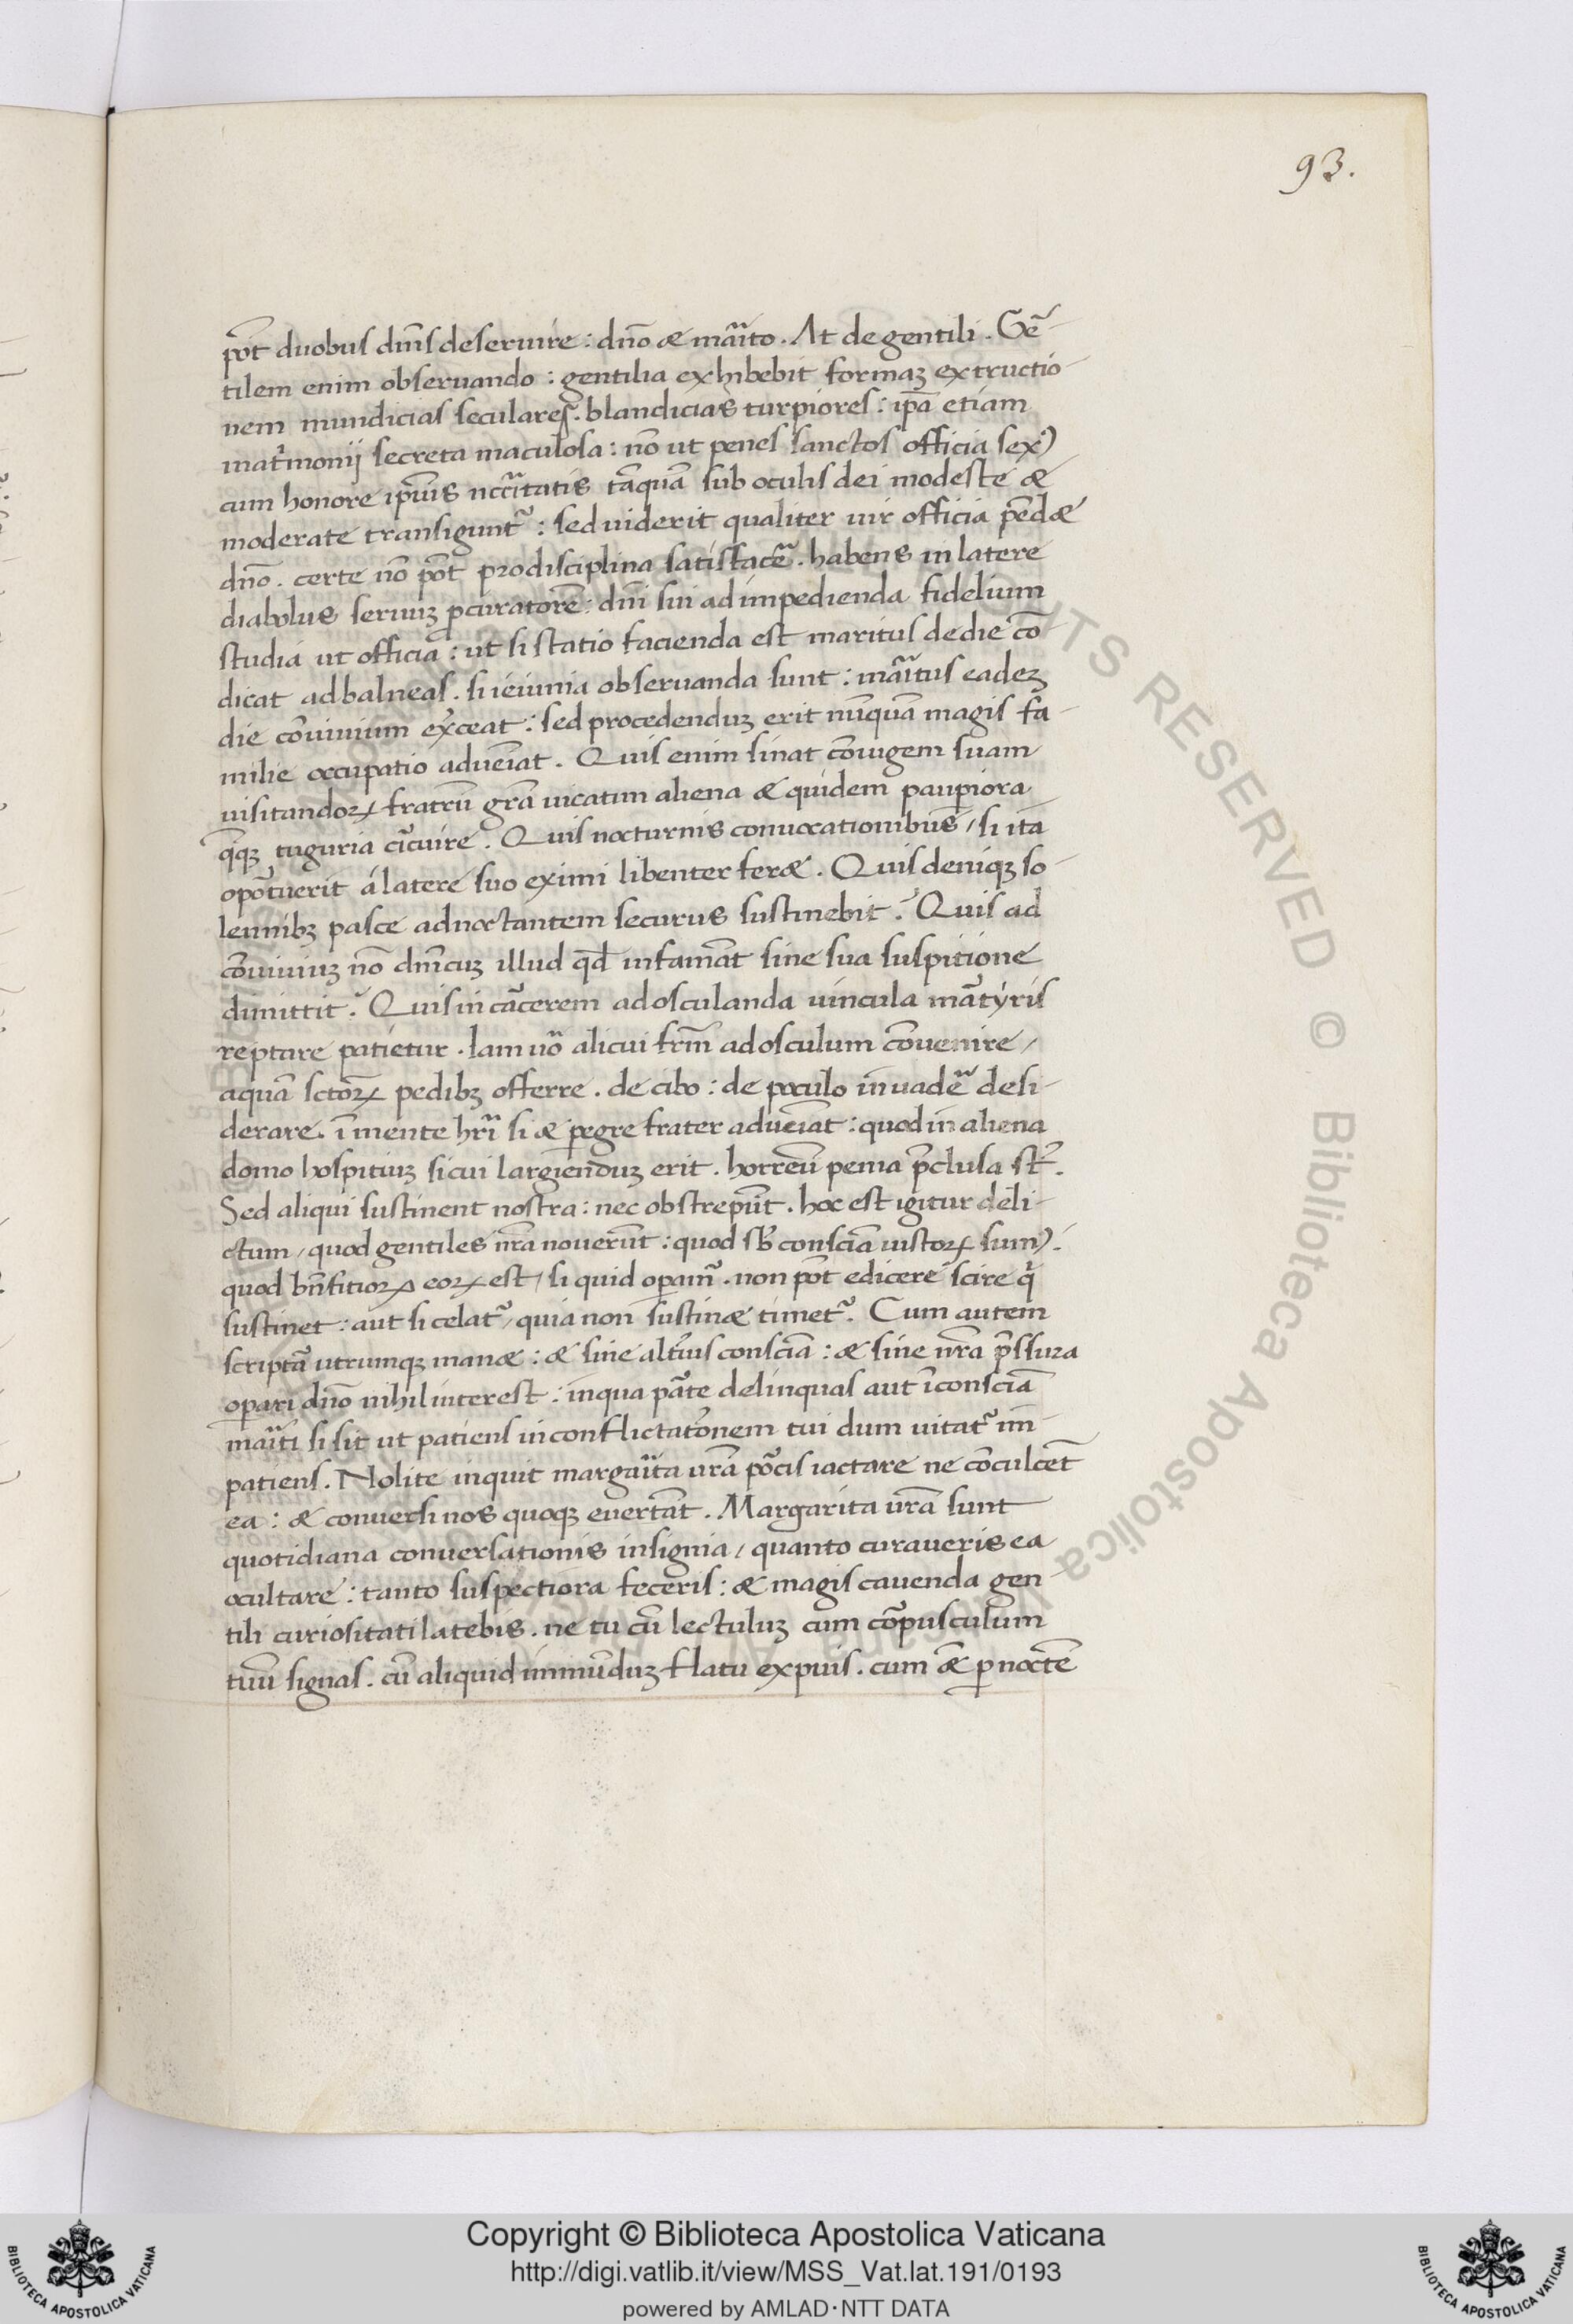 93.
pōt duobus dnīs deseruire: dnō & marito. At de gentili. Gē-
tilem enim obseruando: gentilia exhibebit formaʒ extructio-
nem mundicias seculares. blandicias turpiores: ipā etiam
matrimonij secreta maculosa: nō ut penes sanctos officia sex9
cum honore ipīus nccītatis tāquā sub oculis dei modeste &
moderate transigunt᷑: sed uiderit qualiter uir officia pēdæ
dnō. certe nō pōt pro disciplina satisfacē. habens in latere
diabolus seruuʒ ꝓcuratorē: dnī sui ad impedienda fidelium
studia ut officia: ut si statio facienda est maritus de die cō-
dicat ad balneas. si ieiunia obseruanda sunt: maritus eadeʒ
die cōuiuium exceat: sed procedenduʒ erit nūquā magis fa-
milie occupatio adueniat. Quis enim sinat cōiugem suam
uisitandoꝝ fratrū grā uicatim aliena & quidem pauꝑiora
q̄qʒ tuguria circuire. Quis nocturnis conuocationibus, si ita
oportuerit á latere suo eximi libenter feræ. Quis deniqʒ so-
lennibʒ pasce adnoctantem securus sustinebit? Quis ad
cōuiuiuʒ nō dnīcuʒ illud qđ infamāt sine sua suspitione
dimittit? Quis in carcerem ad osculanda uincula martyris
reptare patietur. Iam uō alicui frm̄ ad osculum cōuenire,
aquā sctōꝝ pedibʒ offerre. de cibo: de poculo inuadē desi-
derare. ī mente hrī si & ꝑegre frater adueniat: quod in aliena
domo hospitiuʒ sicui largienduʒ erit. horreū pema p̄clusa st̄.
Sed aliqui sustinent nostra: nec obstrepūt. hoc est igitur deli-
ctum, quod gentiles nrā nouerūt: quod sb̄ consciā iustoꝝ sum9.
quod bnfitioꝝ eoꝝ est, si quid oꝑam᷑. non pōt edicere scire q̄
sustinet: aut si celat᷑, quia non sustinæ timet᷑. Cum autem
scriptā utrumqʒ manæ: & sine alt̄ius consciā: & sine nrā p̄ssura
oꝑari dnō nihil interest: in qua parte delinquas aut ī consciā
mariti si sit ut patiens in conflictatōnem tui dum uitat᷑ im-
patiens. Nolite inquit margarita urā porcis iactare ne cōculcēt
ea: & conuersi nos quoqʒ euertāt. Margarita urā sunt
quotidiana conuersationis insignia, quanto curaueris ea
ocultare: tanto suspectiora feceris: & magis cauenda gen-
tili curiositati latebis. ne tu cū lectuluʒ cum corpusculum
tuū signas. cū aliquid immūduʒ flatu expuis. cum &̄ ꝑ noctē
RIGHTS RESERVED © Biblioteca Apostolica Vaticana
Copyright © Biblioteca Apostolica Vaticana
http://digi.vatlib.it/view/MSS_Vat.lat.191/0193
powered by AMLAD·NTT DATA
BIBLIOTECA APOSTOLICA VATICANA
BIBLIOTECA APOSTOLICA VATICANA